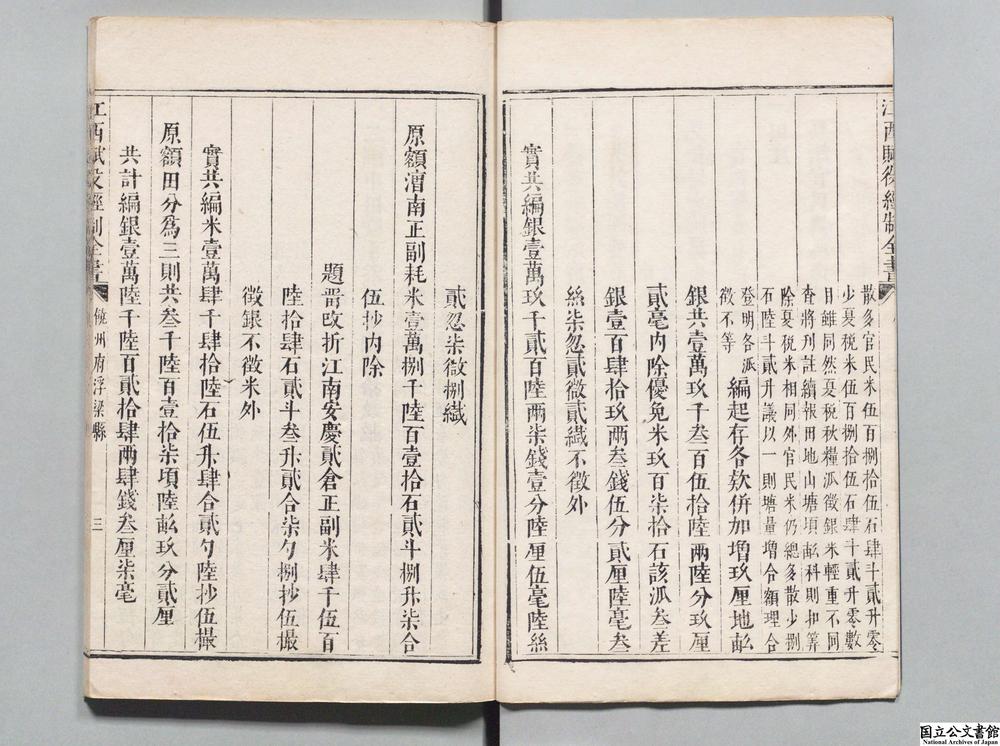 江西賦役經制全書
散多官民米伍百捌拾伍石肆斗貳升零
少夏税米伍百捌拾伍石肆斗貳升零數
目雖同然夏税秋糧派徵銀米輕重不同
查將刋註續報田地山塘頃畝科則扣筭
除夏税米相同外官民米仍總多散少捌
石陸斗貳升議以一則塘量增合額理合
登明各派
徵不等
編起存各款併加增玖厘地畝
銀共壹萬玖千叁百伍拾陸兩陸分玖厘
貳毫内除優免米玖百柒拾石該派叁差
銀壹百肆拾玖兩叁錢伍分貳厘陸毫叁
絲柒忽貳微貳纎不徵外
實共編銀壹萬玖千貳百陸兩柒錢壹分陸厘伍毫陸絲
貳忽柒微捌纎
原額漕南正副耗米壹萬捌千陸百壹拾石貳斗捌升柒合
伍抄内除
題留改折江南安慶貳倉正副米肆千伍百
陸拾肆石貳斗叁升貳合柒勺捌抄伍撮
徵銀不徵米外
實共編米壹萬肆千肆拾陸石伍升肆合貳勺陸抄伍撮
原額田分爲三則共叁千陸百壹拾柒頃陸畝玖分貳厘
共計編銀壹萬陸千陸百貳拾肆兩肆錢叁厘柒毫
江西賦役經制全書
饒州府浮梁縣
三
国立公文書館
National Archives of Japan